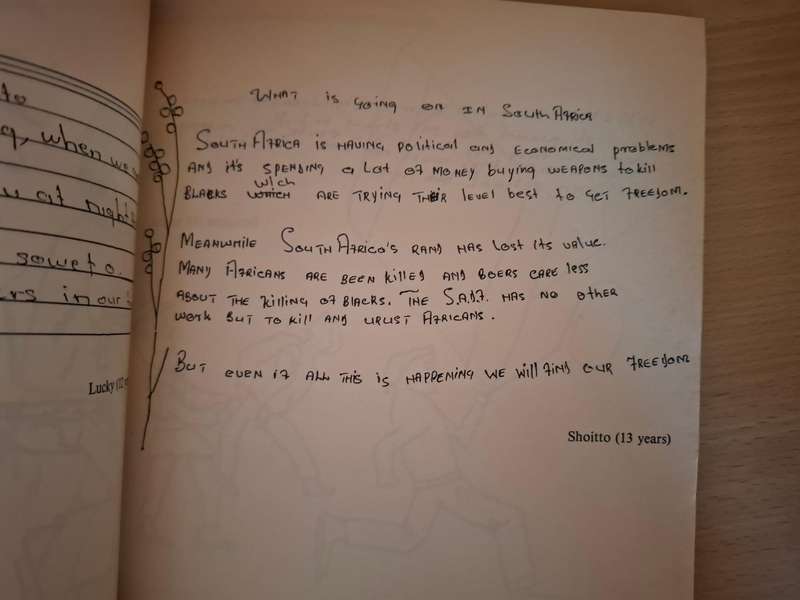 to
g, when we
u at night
soweto.
rs in our
Lucky (12
WHAT is going on IN South Africa
South Africa is having political and Economical problems
and it's spending a lot of money buying weapons to kill
wich
blacks which are trying their level best to get freedom.
Meanwhile South Africa's rand has lost its value.
Many Africans are been killed and boers care less
about the killing of blacks. The S.A.D.F. has no other
work but to kill and urust Africans.
But even if all this is happening we will find our freedom
Shoitto (13 years)